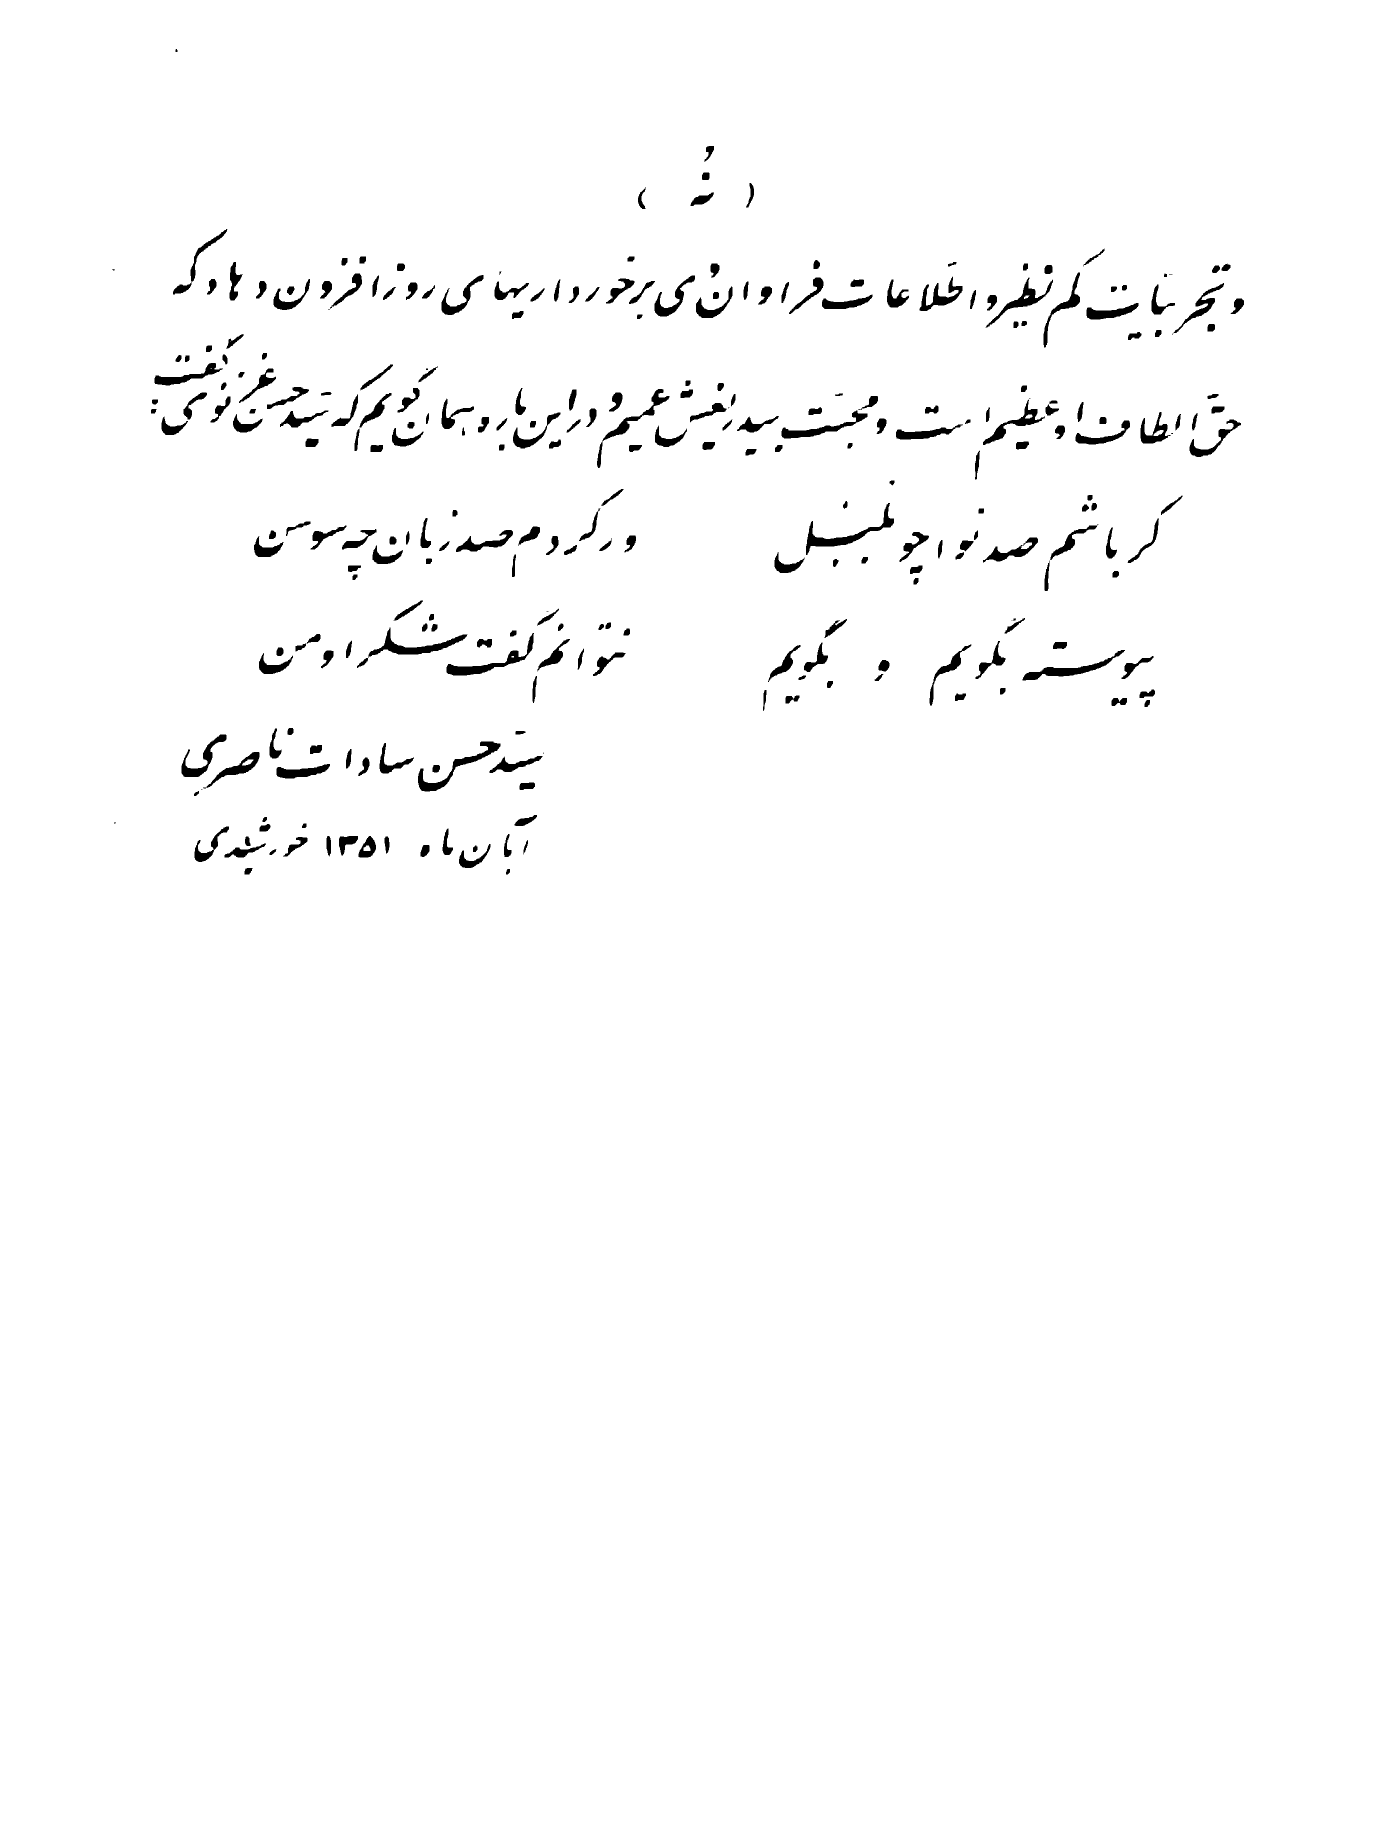 ( نُه )
و تجربیّات کم نظیر و اطّلاعات فراوان وی برخورداریهای روزافزون دهاد که
حقّ الطاف او عظیم است و محبّت بیدریغش عمیم و در این باره همان گویم که سیّد حسن غزنوی گفت :
گر باشم صد نوا چو بلبل
ور گردم صد زبان چه سوسن
پیوسته بگویم و بگویم
نتوانم گفت شکر او من
سیّد حسن سادات ناصری
آبان ماه ۱۳۵۱ خورشیدی